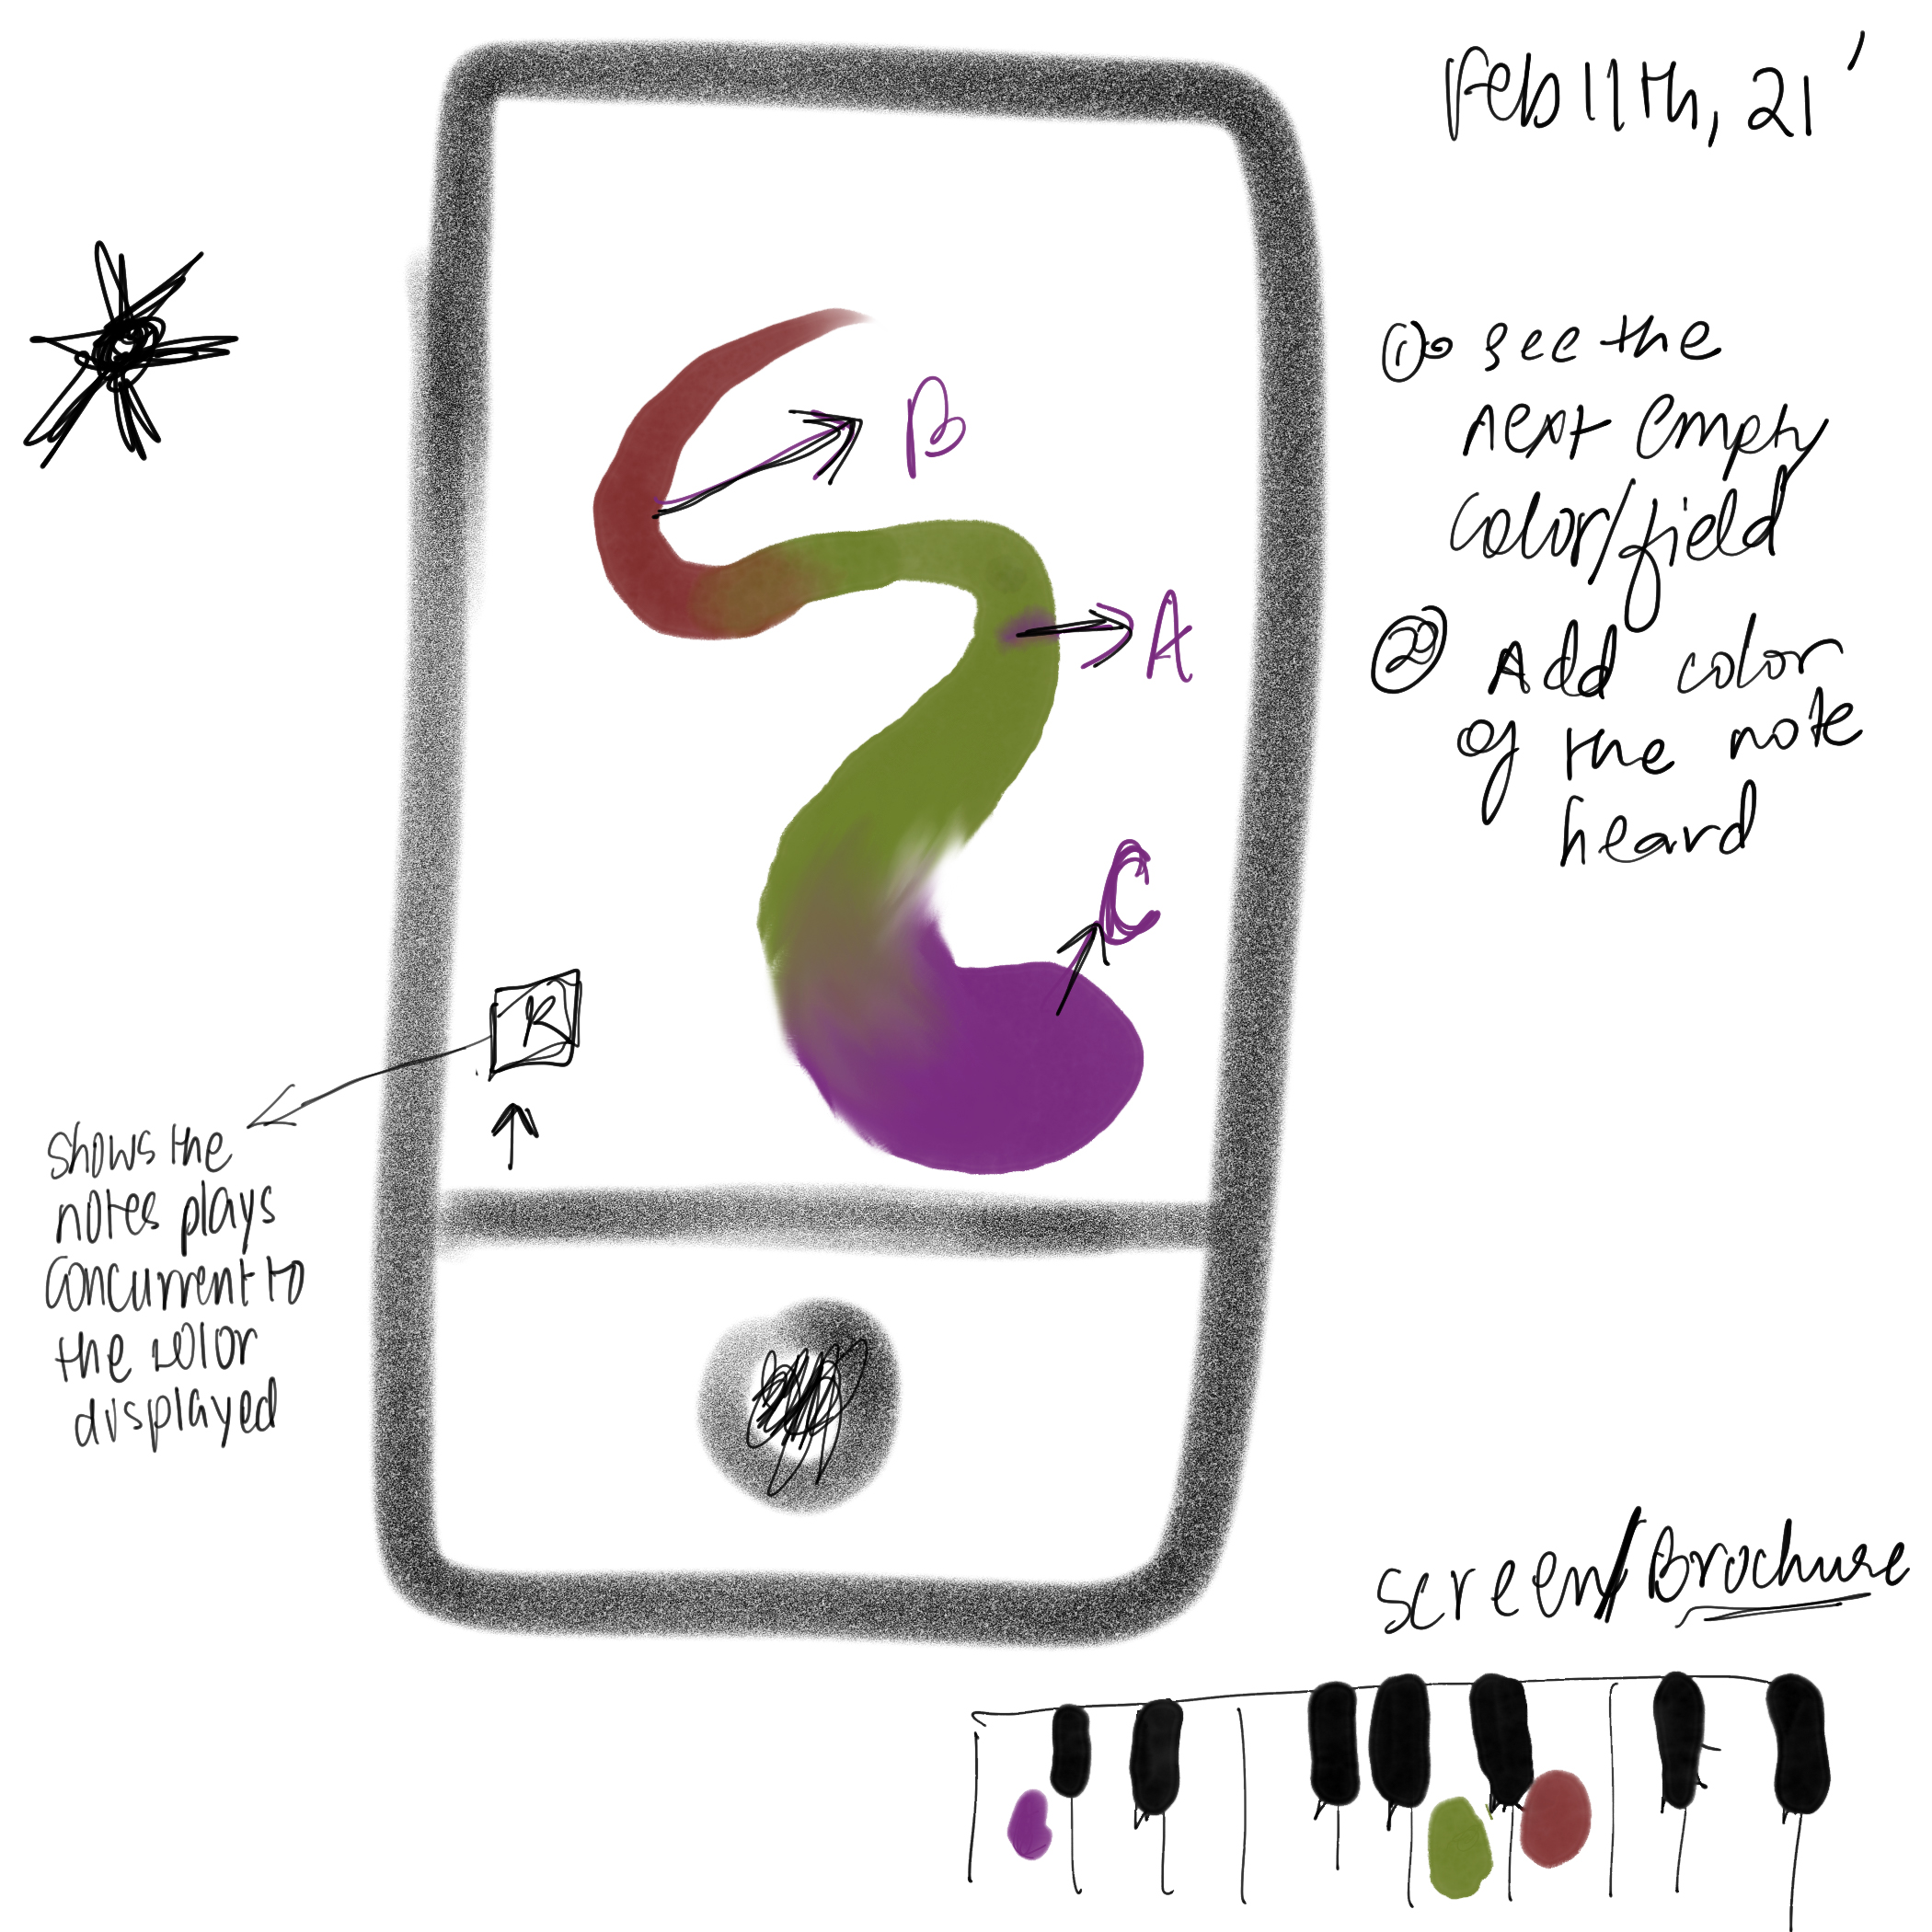 Feb 11th, 21'
① see the
next empty
color/field
② Add color
of the note
heard
B
A
C
R
shows the
notes plays
concurrent to
the color
displayed
screen/Brochure